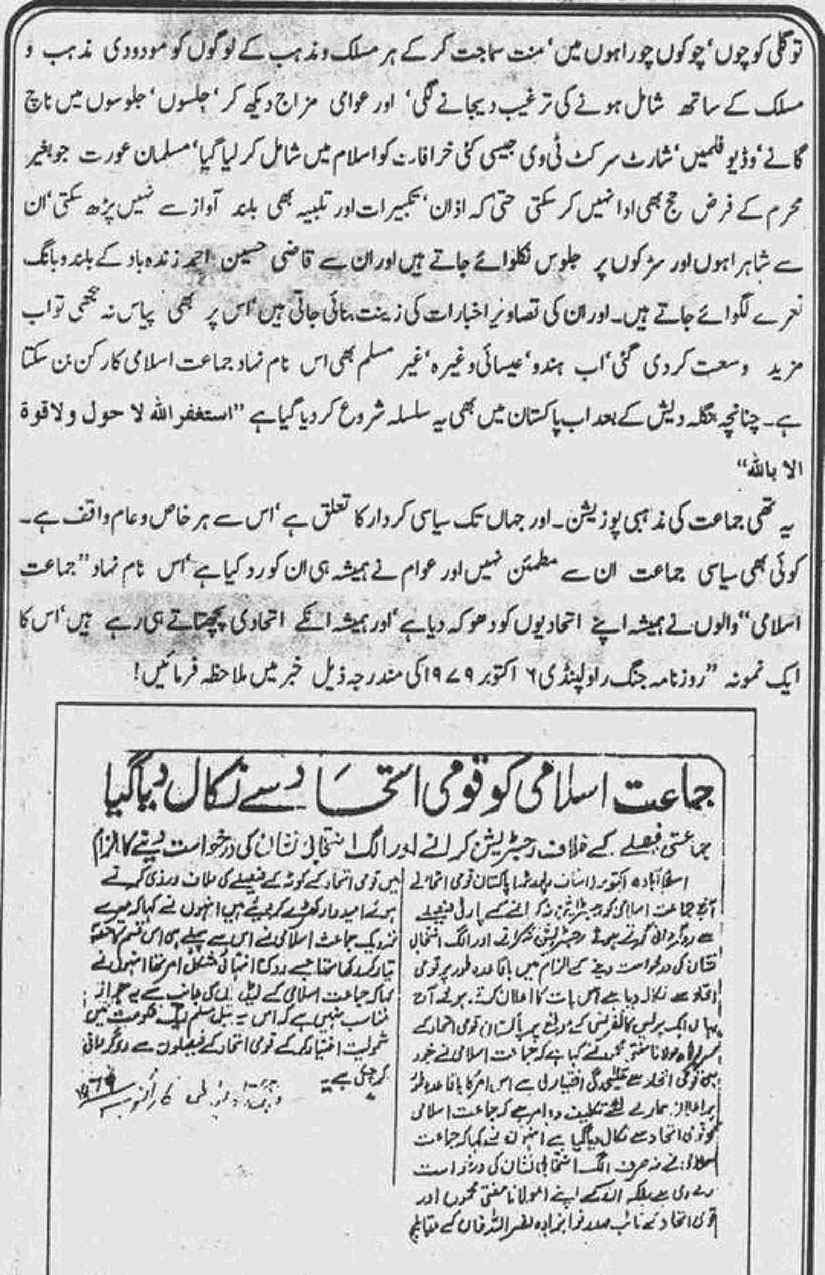 تو گلی کوچوں‘ چوکوں چوراہوں میں‘ منت سماجت کر کے ہر مسلک و مذہب کے لوگوں کو مودودی مذہب و
مسلک کے ساتھ شامل ہونے کی ترغیب دیجانے لگی‘ اور عوامی مزاج دیکھ کر‘ جلسوں‘ جلوسوں میں ناچ
گانے‘ وڈیو فلمیں‘ شارٹ سرکٹ ٹی وی جیسی کئی خرافات کو اسلام میں شامل کر لیا گیا‘ مسلمان عورت جو بغیر
محرم کے فرض حج بھی ادا نہیں کر سکتی حتیٰ کہ اذان‘ تکبیرات اور تلبیہ بھی بلند آواز سے نہیں پڑھ سکتی‘ ان
سے شاہراہوں اور سڑکوں پر جلوس نکلوائے جاتے ہیں اور ان سے قاضی حسین احمد زندہ باد کے بلند و بانگ
نعرے لگوائے جاتے ہیں۔ اور ان کی تصاویر اخبارات کی زینت بنائی جاتی ہیں‘ اس پر بھی پیاس نہ بجھی تو اب
مزید وسعت کر دی گئی‘ اب ہندو‘ عیسائی وغیرہ‘ غیر مسلم بھی اس نام نہاد جماعت اسلامی کا رکن بن سکتا
ہے۔ چنانچہ بنگلہ دیش کے بعد اب پاکستان میں بھی یہ سلسلہ شروع کر دیا گیا ہے ”استغفر اللہ لا حول ولا قوة
الا باللہ“
یہ تھی جماعت کی مذہبی پوزیشن۔ اور جہاں تک سیاسی کردار کا تعلق ہے‘ اس سے ہر خاص و عام واقف ہے۔
کوئی بھی سیاسی جماعت ان سے مطمئن نہیں اور عوام نے ہمیشہ ہی ان کو رد کیا ہے‘ اس نام نہاد ”جماعت
اسلامی“ والوں نے ہمیشہ اپنے اتحادیوں کو دھوکہ دیا ہے‘ اور ہمیشہ انکے اتحادی پچھتاتے ہی رہے ہیں‘ اس کا
ایک نمونہ ”روزنامہ جنگ راولپنڈی ۶ اکتوبر ۱۹۷۹ کی مندرجہ ذیل خبر میں ملاحظہ فرمائیں!
جماعت اسلامی کو قومی اتحاد سے نکال دیا گیا
جماعتی فیصلے کے خلاف رجسٹریشن کرانے اور الگ انتخابی نشان کی درخواست دینے کا الزام
اسلام آباد ۵ اکتوبر پاکستان قومی اتحاد نے
آج جماعت اسلامی کو رجسٹریشن نہ کرانے کے پارٹی فیصلے
سے روگردانی کرتے ہوئے رجسٹریشن کرانے اور الگ انتخابی
نشان کی درخواست دینے کے الزام میں باقاعدہ طور پر قومی
اتحاد سے نکال دیا ہے اس بات کا اعلان کرتے ہوئے آج
یہاں ایک پریس کانفرنس کے ذریعے پاکستان قومی اتحاد کے
سربراہ مولانا مفتی محمود نے کہا ہے کہ جماعت اسلامی نے خود
ہی قومی اتحاد سے علیحدگی اختیار کی ہے اس امر کا باقاعدہ طور
پر اعلان ہمارے لئے تکلیف دہ امر ہے کہ جماعت اسلامی
کو قومی اتحاد سے نکال دیا گیا ہے انہوں نے کہا کہ جماعت
اسلامی نے نہ صرف الگ انتخابی نشان کی درخواست
دے دی ہے بلکہ اس کے اپنے مولانا مفتی محمود اور
قومی اتحاد کے نائب صدر نوابزادہ نصر اللہ خاں کے مقابلے
میں قومی اتحاد کے کوٹہ کے فیصلے کی خلاف ورزی کرتے
ہوئے امیدوار کھڑے کر دیئے ہیں انہوں نے کہا کہ میرے
نزدیک جماعت اسلامی نے اس سے پہلے ہی اس قسم کا
تیار کر رکھا تھا جسے روکنا انتہائی مشکل امر تھا انہوں نے
کہا کہ جماعت اسلامی کے لیڈروں کی جانب سے یہ
مناسب نہیں ہے کہ اس سے قبل مسلم لیگ حکومت میں
شمولیت اختیار کر کے قومی اتحاد کے فیصلوں سے روگردانی
کر چکی ہے